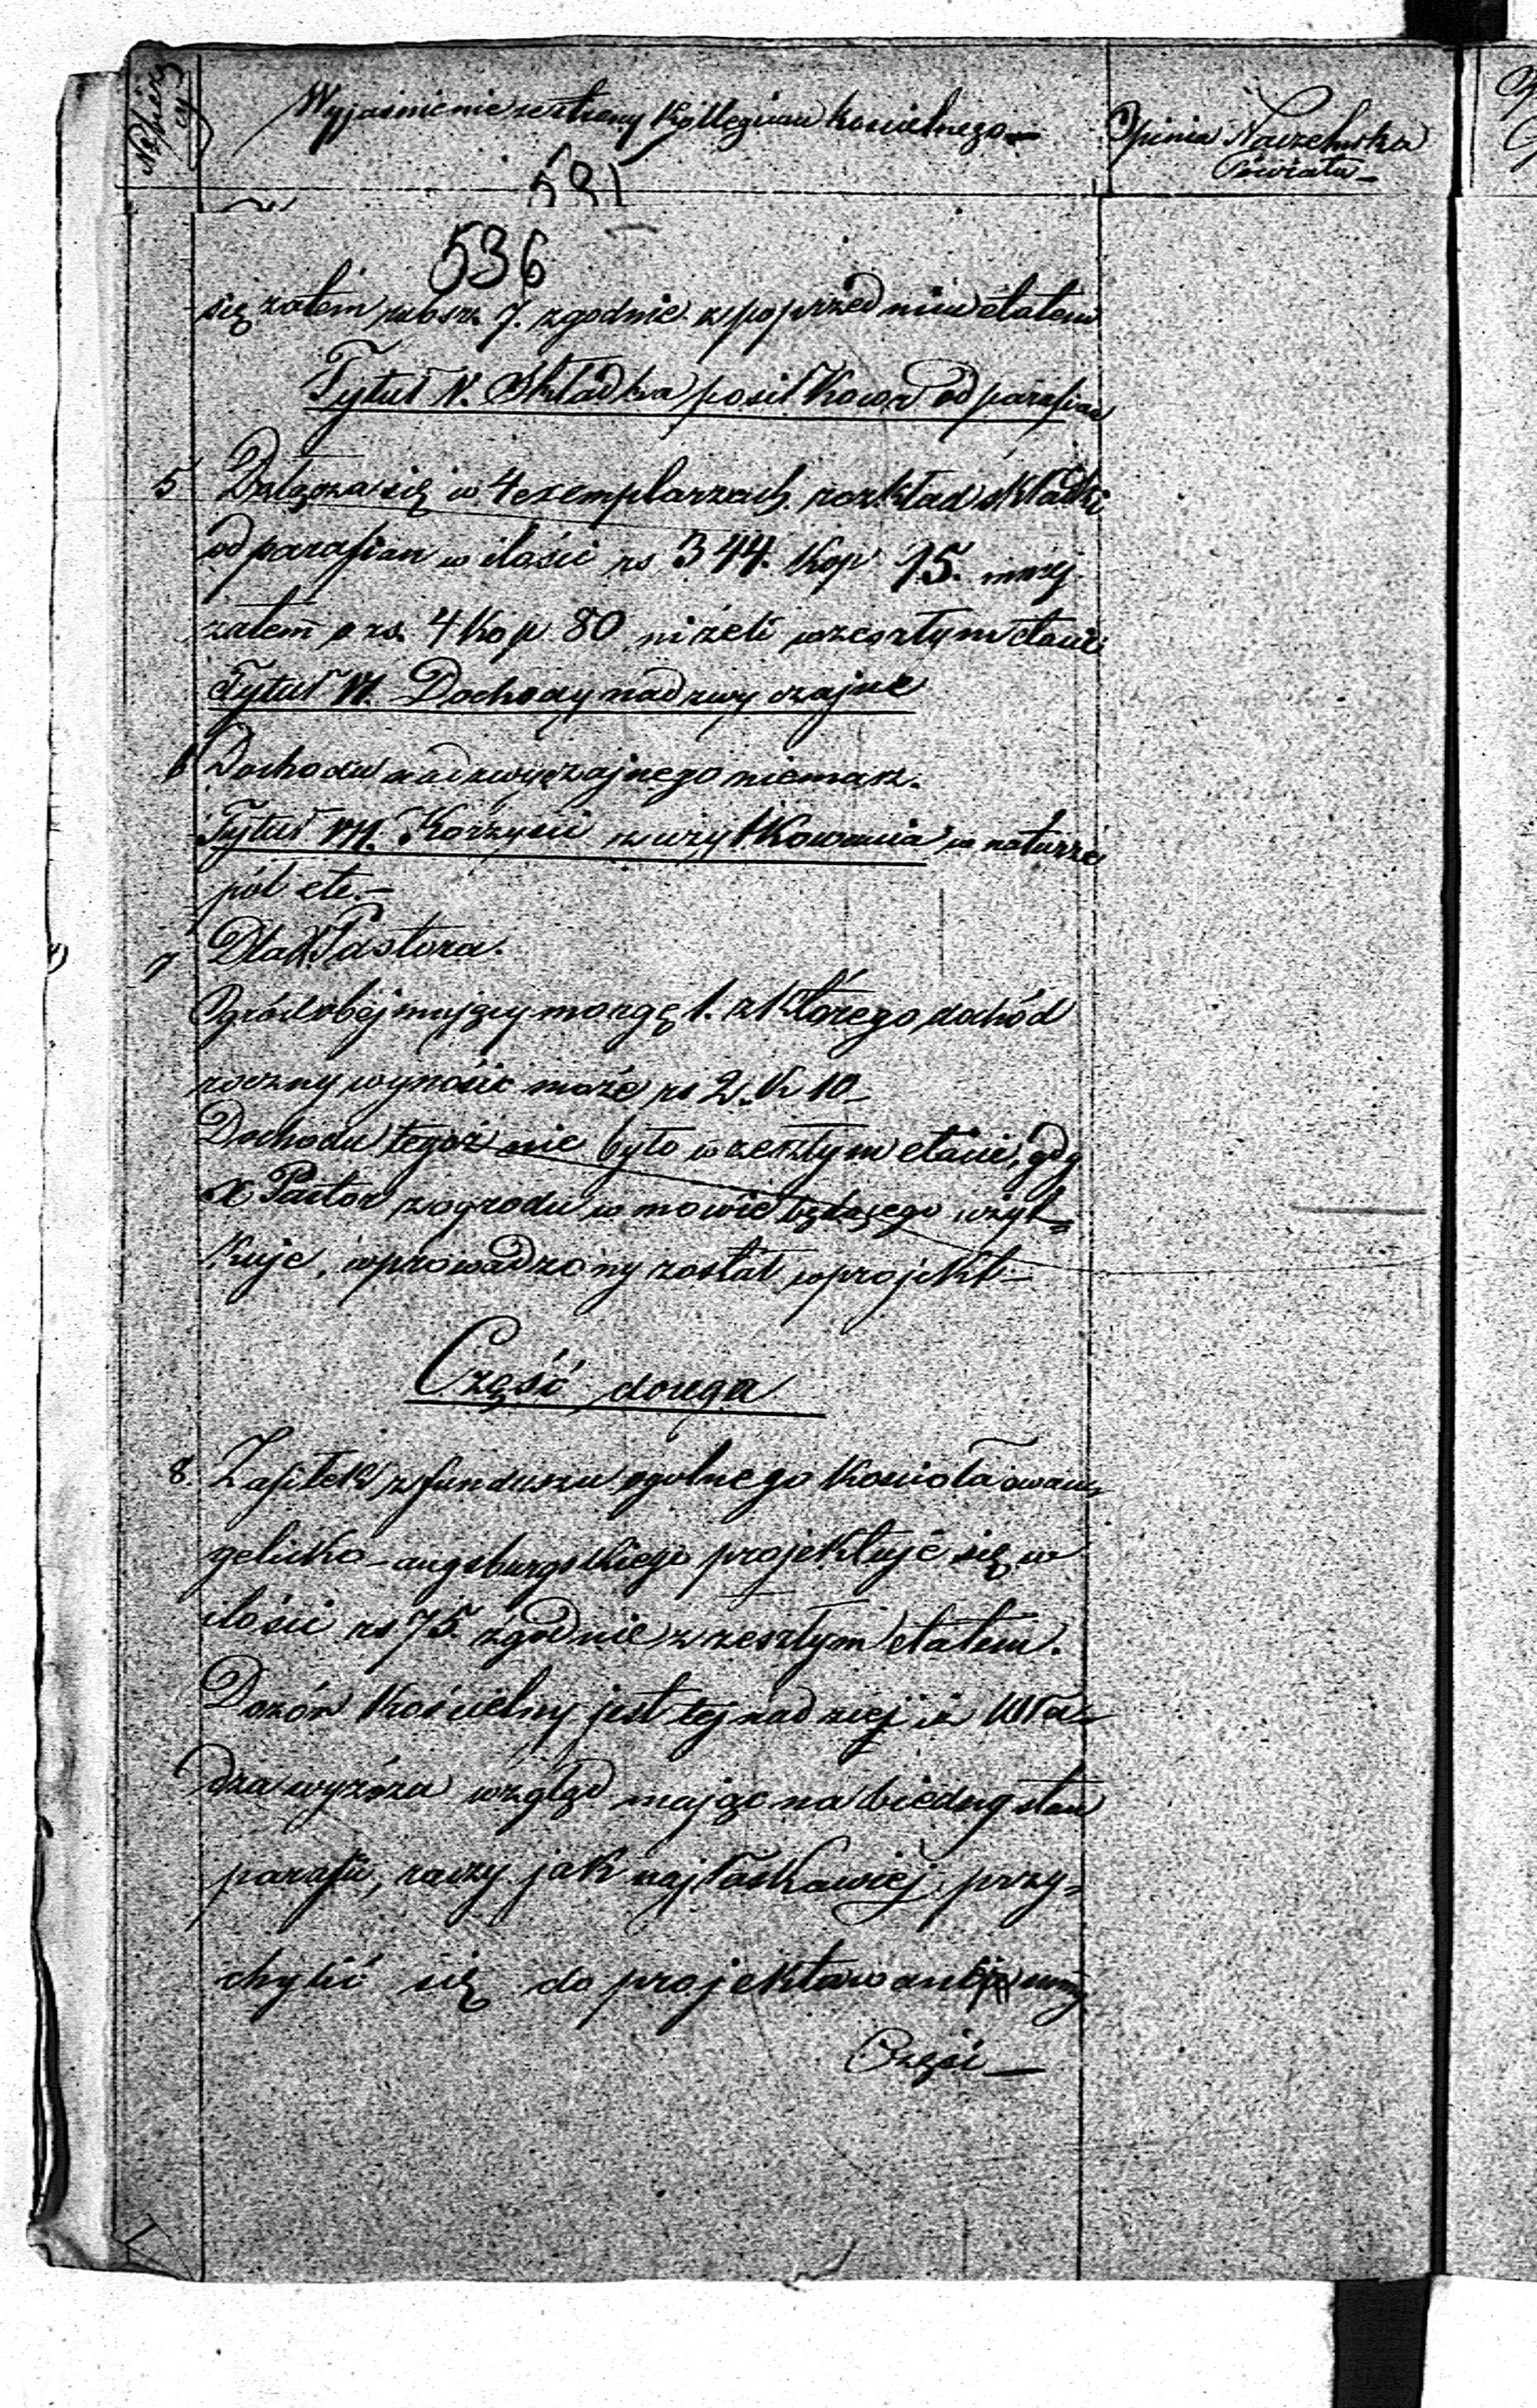 Wyjaśnienie ze strony Kollegium kościelnego
Opinia Naczelnika
Powiatu
581
536
się zatem rubsr. 7. zgodnie z poprzednim etatem
Tytuł V. Składka posiłkowa od parafian
5 Dołącza się w 4 exemplarzach rozkład składki
od parafian w ilości rs 344. Kop 15. mniej
zatem o rs. 4 Kop 80 niżeli w zeszłym etacie
Tytuł VI. Dochody nadzwyczajne
6 Dochodu nadzwyczajnego niemasz.
Tytuł VII. Korzyści z użytkowania w naturze
pól etc.
7 Dla X Pastora.
Ogród obejmujący morgę 1. z którego dochód
roczny wynosić może rs 2. K 10
Dochodu tegoż nie było w zeszłym etacie, gdy
X Pastor z ogrodu w mowie będącego użyt=
kuje, wprowadzony został w projekt
Część druga
8. Zasiłek z funduszu ogólnego Kościoła ewan=
gelicko-augsburgskiego projektuje się w
ilości rs 75. zgodnie z zeszłym etatem.
Dozór Kościelny jest tej nadziej iż Wła=
dza wyższa wzgląd mając na biedny stan
parafii, raczy jak najłaskawiej przy=
chylić się do projektowanej
Części